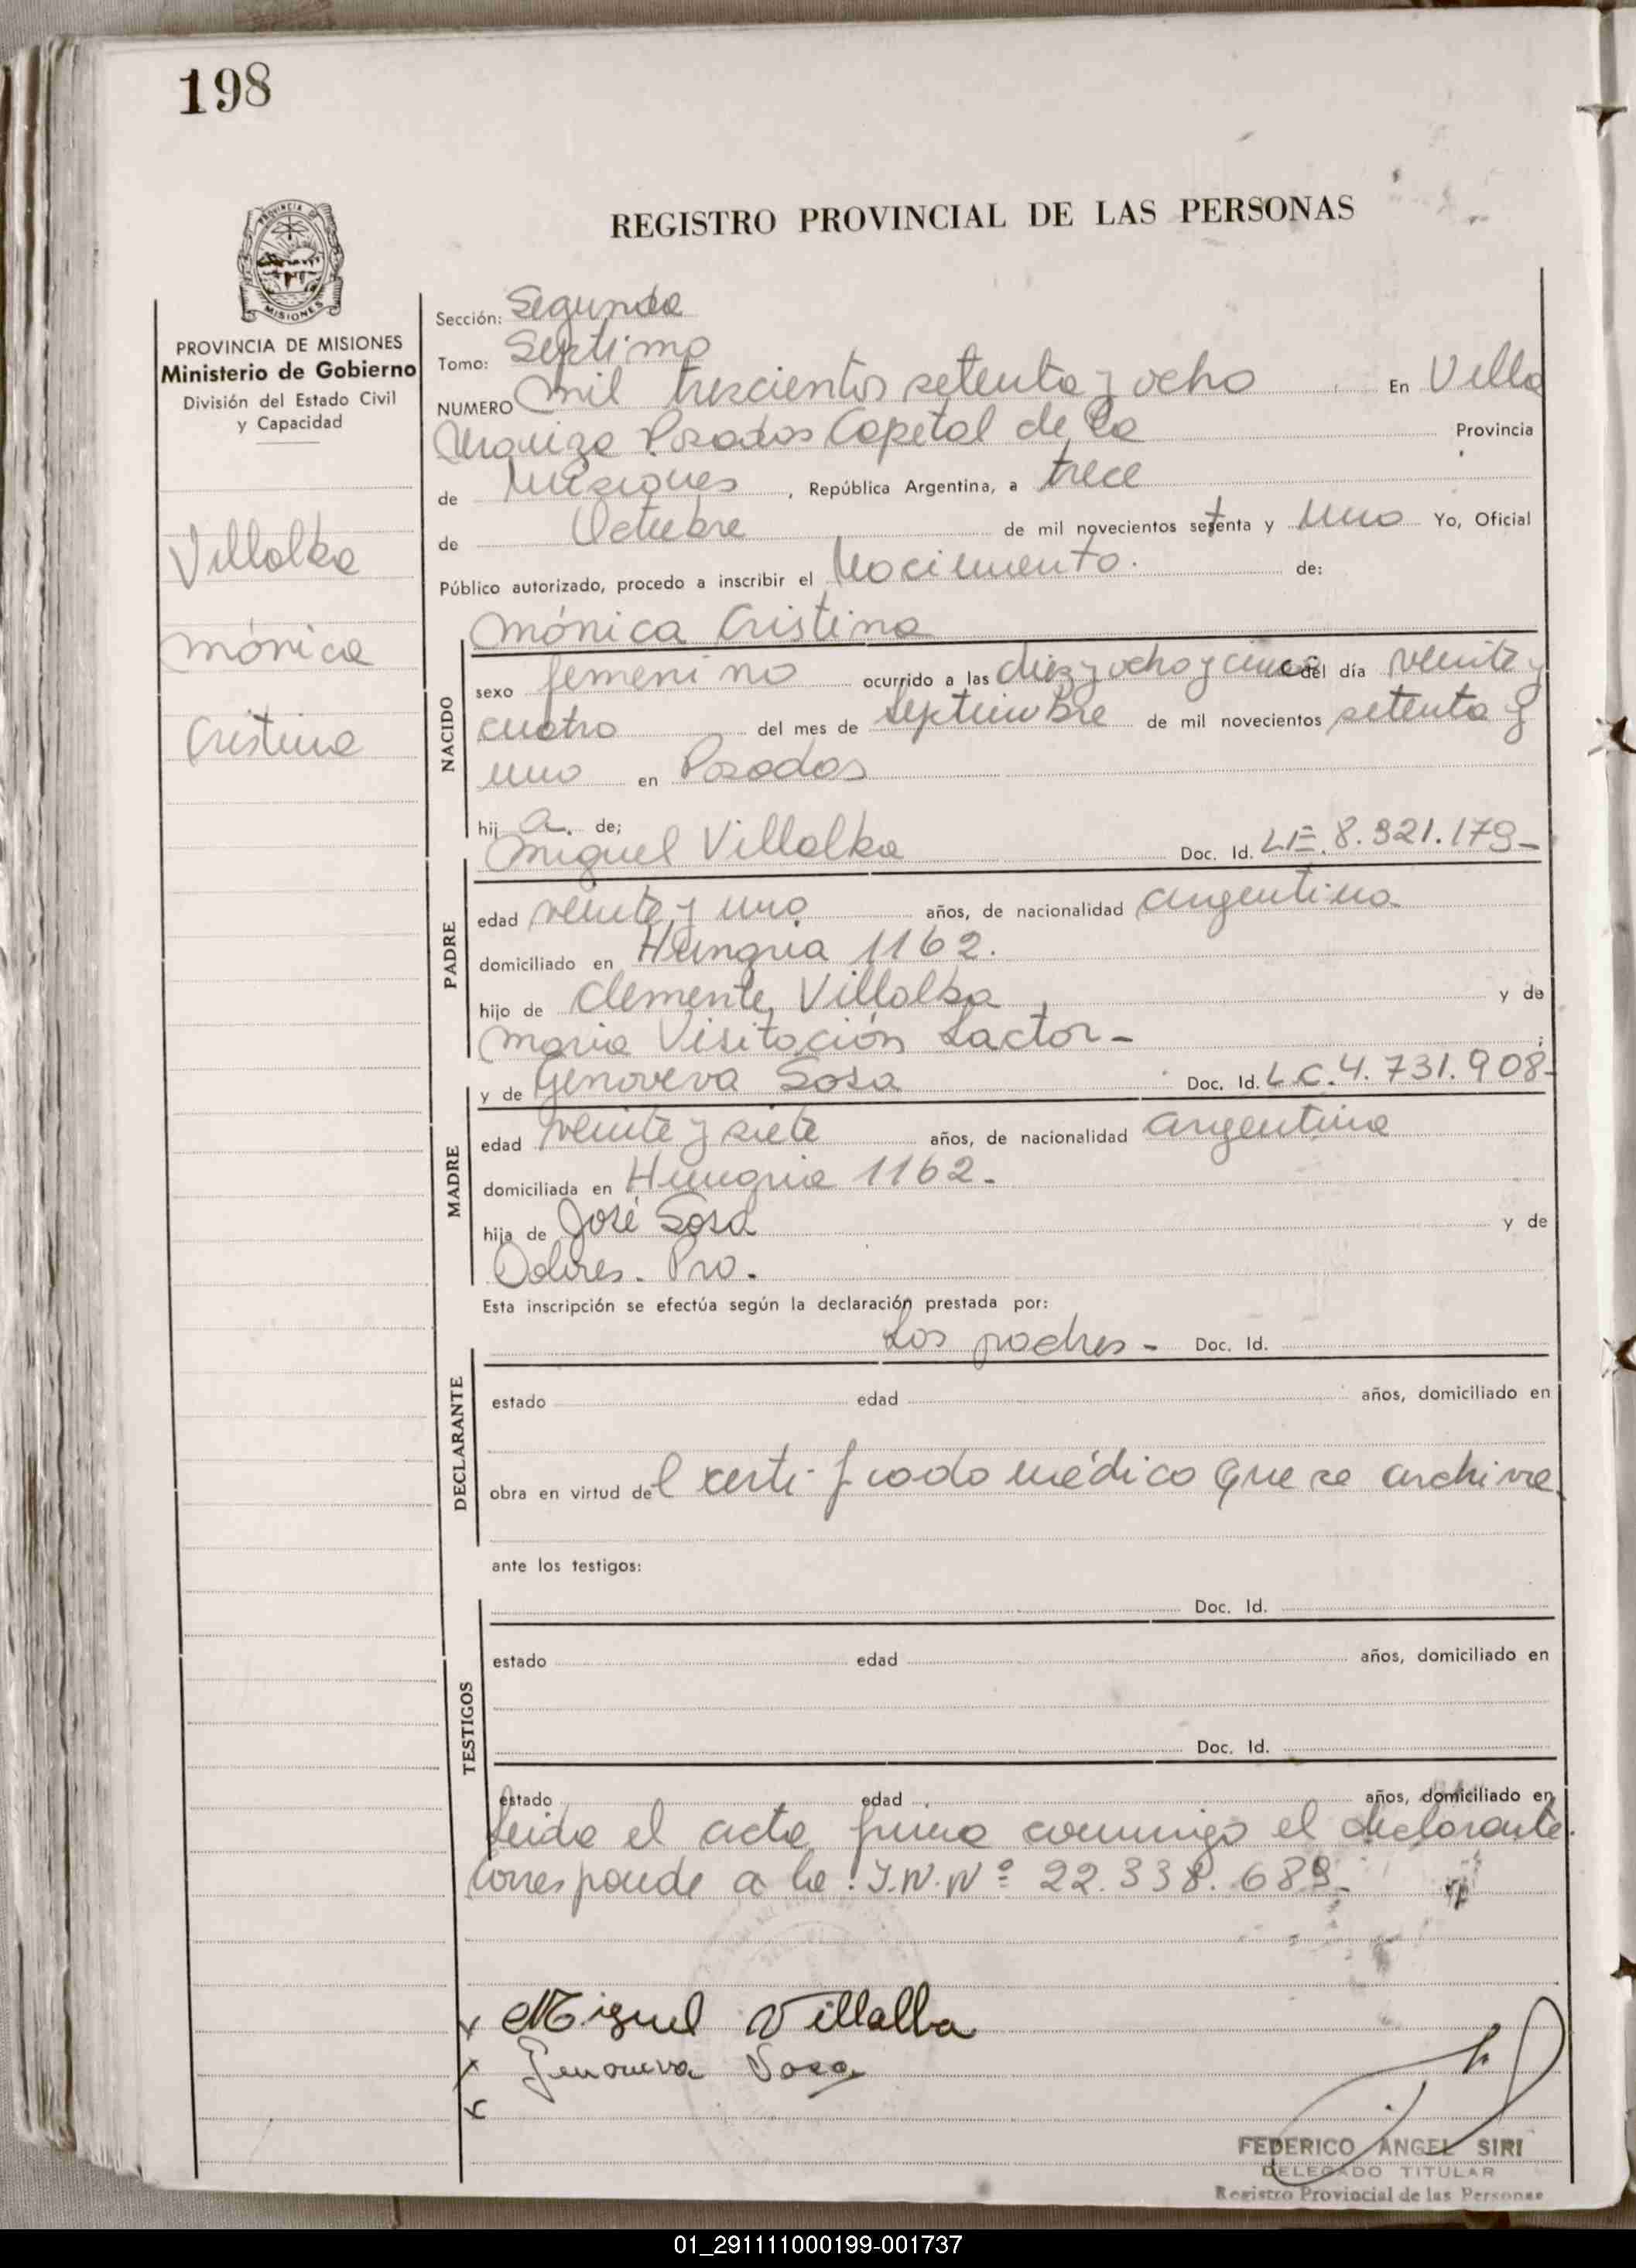 198
REGISTRO PROVINCIAL DE LAS PERSONAS
MISIONES
PROVINCIA DE MISIONES
Ministerio de Gobierno
División del Estado Civil
y Capacidad
Villalba
Mónica
Cristina
Sección: Segunda
Tomo: Septimo
NUMERO Mil trescientos setenta y ocho En Villa
Urquiza Posadas Capital de la Provincia
de Misiones, República Argentina, a trece
de Octubre de mil novecientos setenta y uno Yo, Oficial
Público autorizado, procedo a inscribir el Nacimiento. de:
Mónica Cristina
NACIDO
sexo femenino ocurrido a las diez y ocho y cinco del día veinte y
cuatro del mes de septiembre de mil novecientos setenta y
uno en Posadas
hija. de;
Miguel Villalba Doc. Id. L.E. 8.321.179-
PADRE
edad veinte y uno años, de nacionalidad argentino
domiciliado en Hungria 1162.
hijo de Clemente Villalba y de
Maria Visitación Lactor-
y de Genoveva Sosa Doc. Id. L.C. 4.731.908-
MADRE
edad veinte y siete años, de nacionalidad argentina
domiciliada en Hungria 1162-
hija de José Sosa y de
Dolores. Pro.
Esta inscripción se efectúa según la declaración prestada por:
Los padres- Doc. Id.
DECLARANTE
estado edad años, domiciliado en
obra en virtud del certificado médico que se archiva
ante los testigos:
Doc. Id.
TESTIGOS
estado edad años, domiciliado en
Doc. Id.
estado edad años, domiciliado en
Leida el acta firma conmigo el declarante.
Corresponde a la I.N.Nº 22.338.689-
Miguel Villalba
Genoveva Sosa
FEDERICO ANGEL SIRI
DELEGADO TITULAR
Registro Provincial de las Personas
01_291111000199-001737